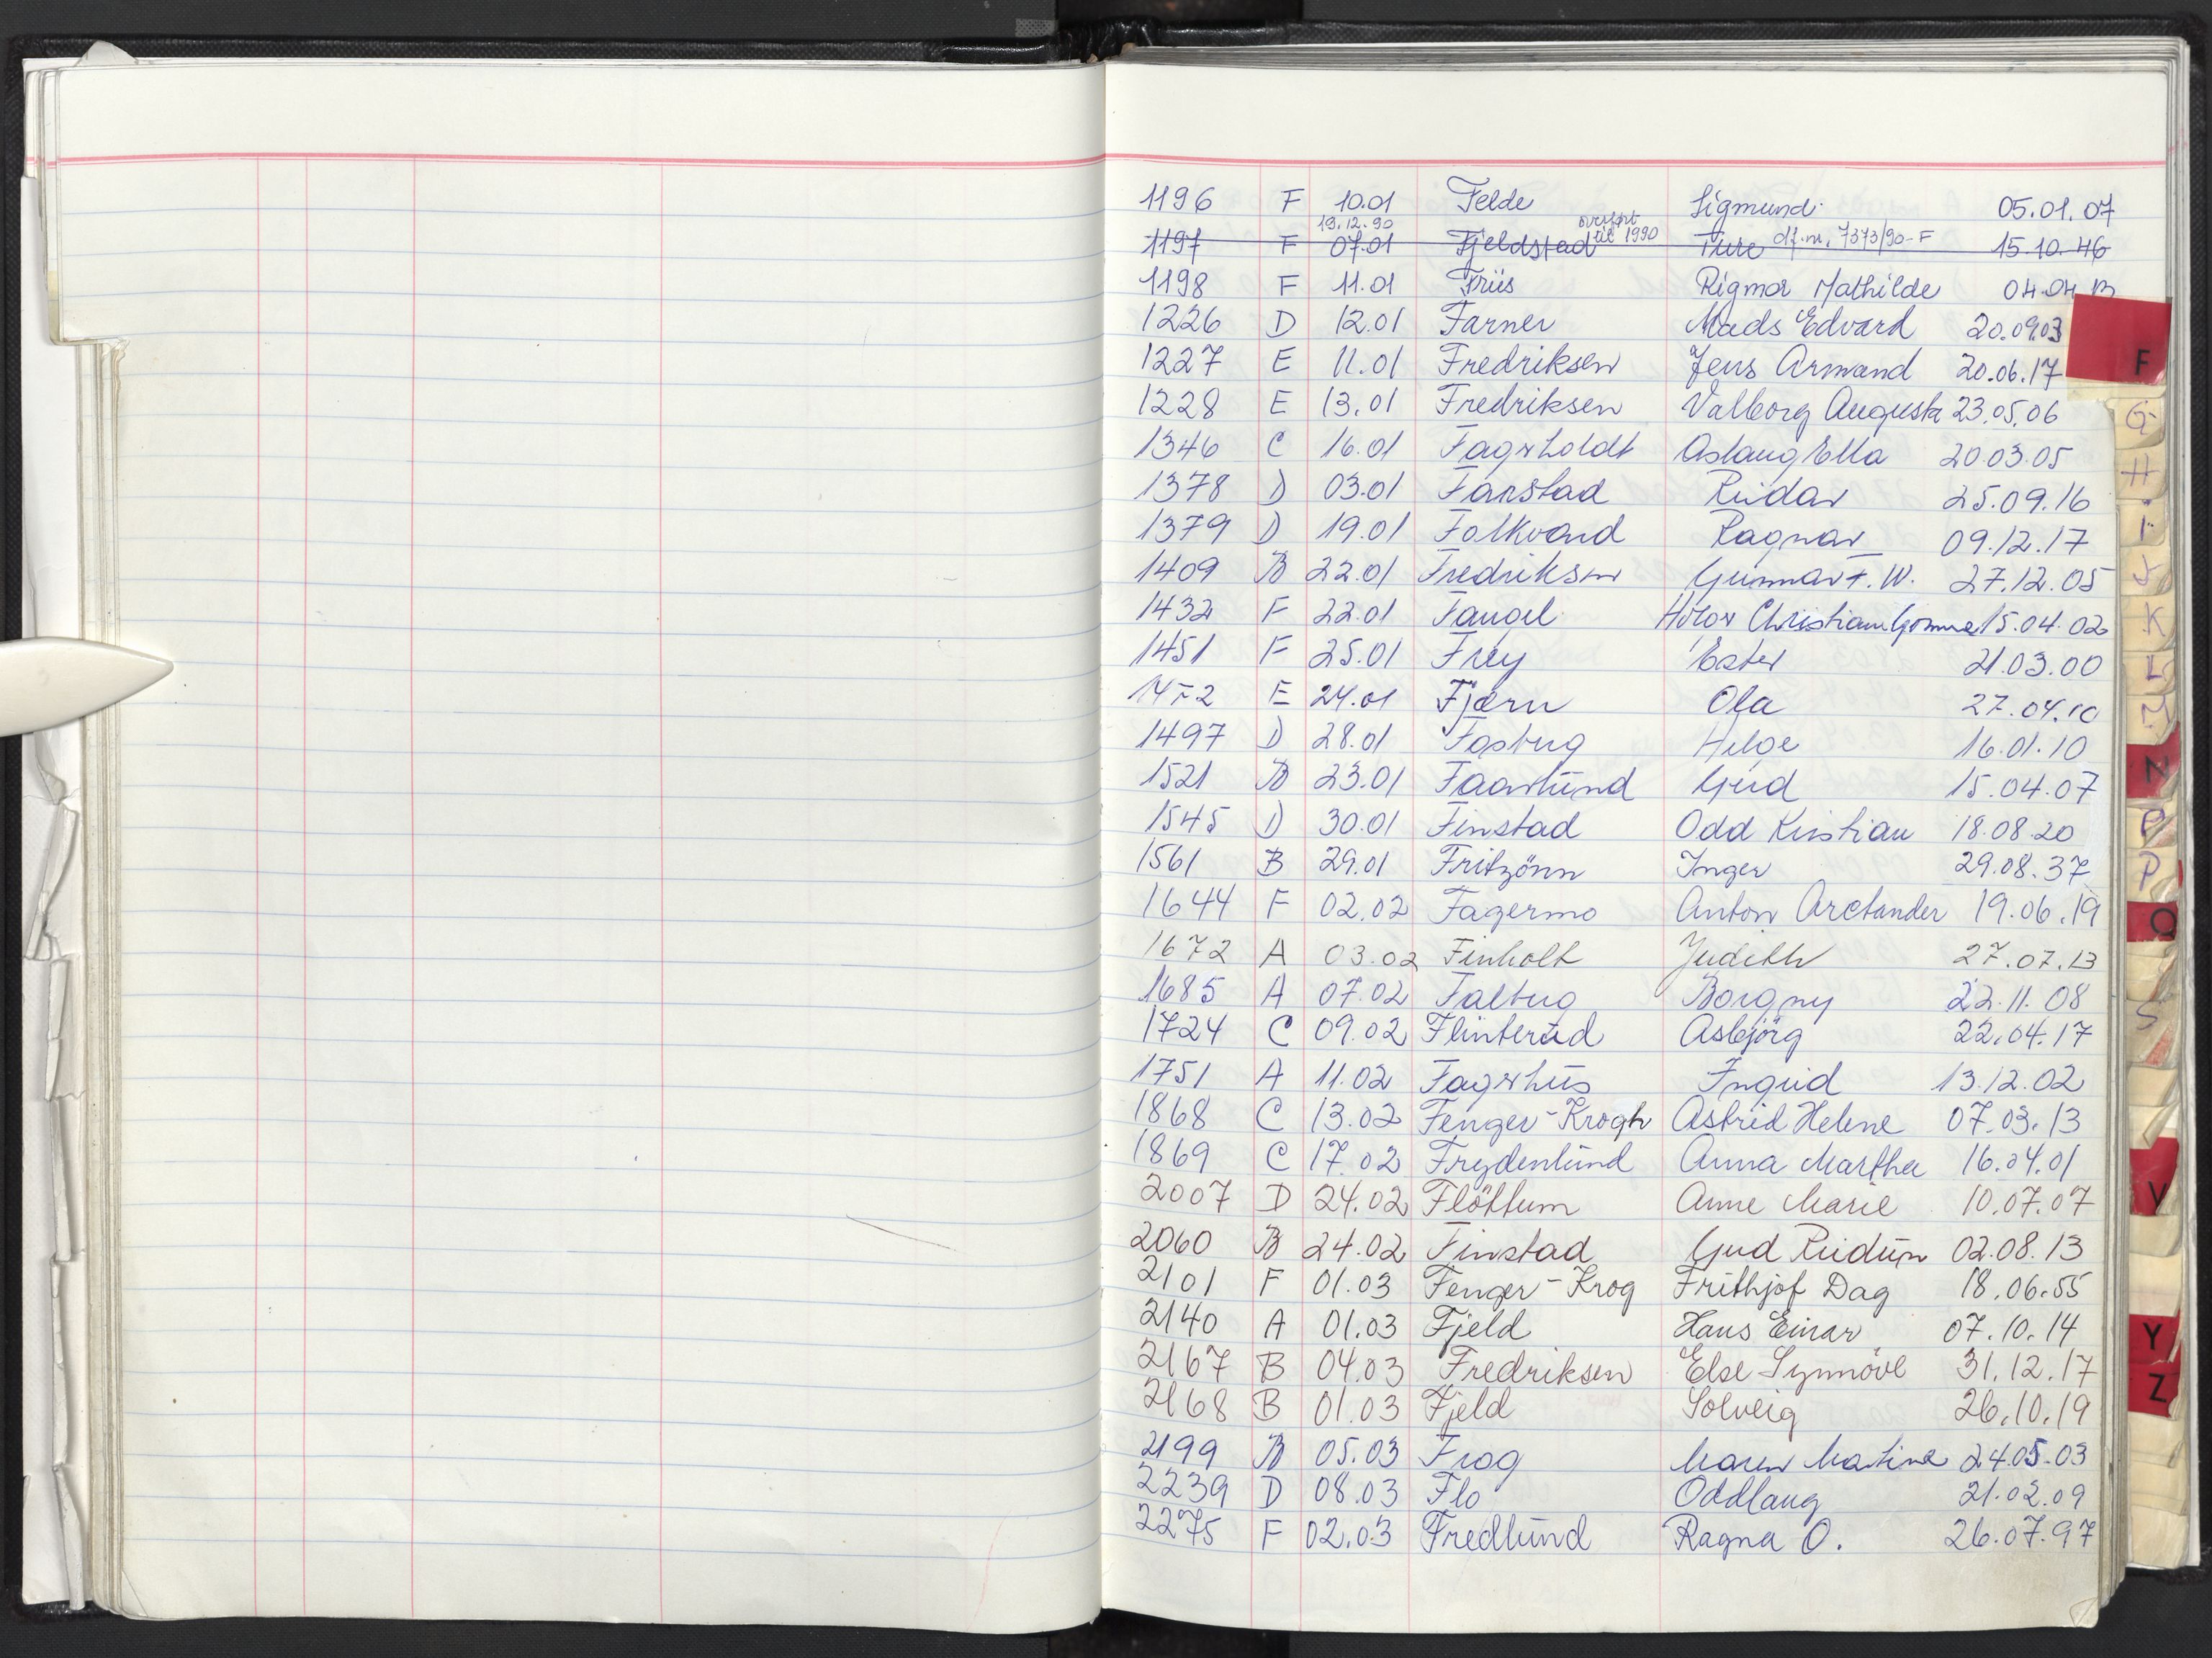 1196 F 10.01 Felde Sigmund 05.01.07
19.12.90 overført
1197 F 07.01 Fjeldstad til 1990 Ture df.nr. 7373/90-F 15.10.46
1198 F 11.01 Friis Rigmor Mathilde 04.04.13
1226 D 12.01 Farner Mads Edvard 20.09.03
1227 E 11.01 Fredriksen Jens Armand 20.06.17
1228 E 13.01 Fredriksen Valborg Augusta 23.05.06
1346 C 16.01 Fagerholdt Aslaug Ella 20.03.05
1378 D 03.01 Farstad Reidar 25.09.16
1379 D 19.01 Folkvord Ragnar 09.12.17
1409 B 22.01 Fredriksen Gunnar F. W. 27.12.05
1432 F 22.01 Fangel Christian 15.04.02
1451 F 25.01 Frey Ester 21.03.00
E 24.01 Fjærn Ola 27.04.10
1497 D 28.01 Fosbug Helge 16.01.10
1521 B 23.01 Faarlund Gerd 15.04.07
1545 D 30.01 Finstad Odd Kristian 18.08.20
1561 B 29.01 Fritzönn Inger 29.08.37
1644 F 02.02 Fagermo Anton Arctander 19.06.19
1672 A 03.02 Finholt Judith 27.07.13
1685 A 07.02 Falbug Borgny 22.11.08
1724 C 09.02 Flinterud Asbjörg 22.04.17
1751 A 11.02 Fagerhus Ingrid 13.12.02
1868 C 13.02 Fenger-Krogh Astrid Helene 07.03.13
1869 C 17.02 Frydenlund Anna Marthea 16.04.01
2007 D 24.02 Flöttum Anne Marie 10.07.07
2060 B 24.02 Finstad Gerd Reidun 02.08.13
2101 F 01.03 Fenger-Krog Frithjof Dag 18.06.55
2140 A 01.03 Fjeld Hans Einar 07.10.14
2167 B 04.03 Fredriksen Else Synnöve 31.12.17
2168 B 01.03 Fjeld Solveig 26.10.19
2199 B 05.03 Frog Maren Martine 24.05.03
2239 D 08.03 Flo Oddlaug 21.02.09
2275 F 02.03 Fredlund Ragna O. 26.07.97
F
G
H
I
J
K
L
M
N
O
P
Q
S
V
Y
Z